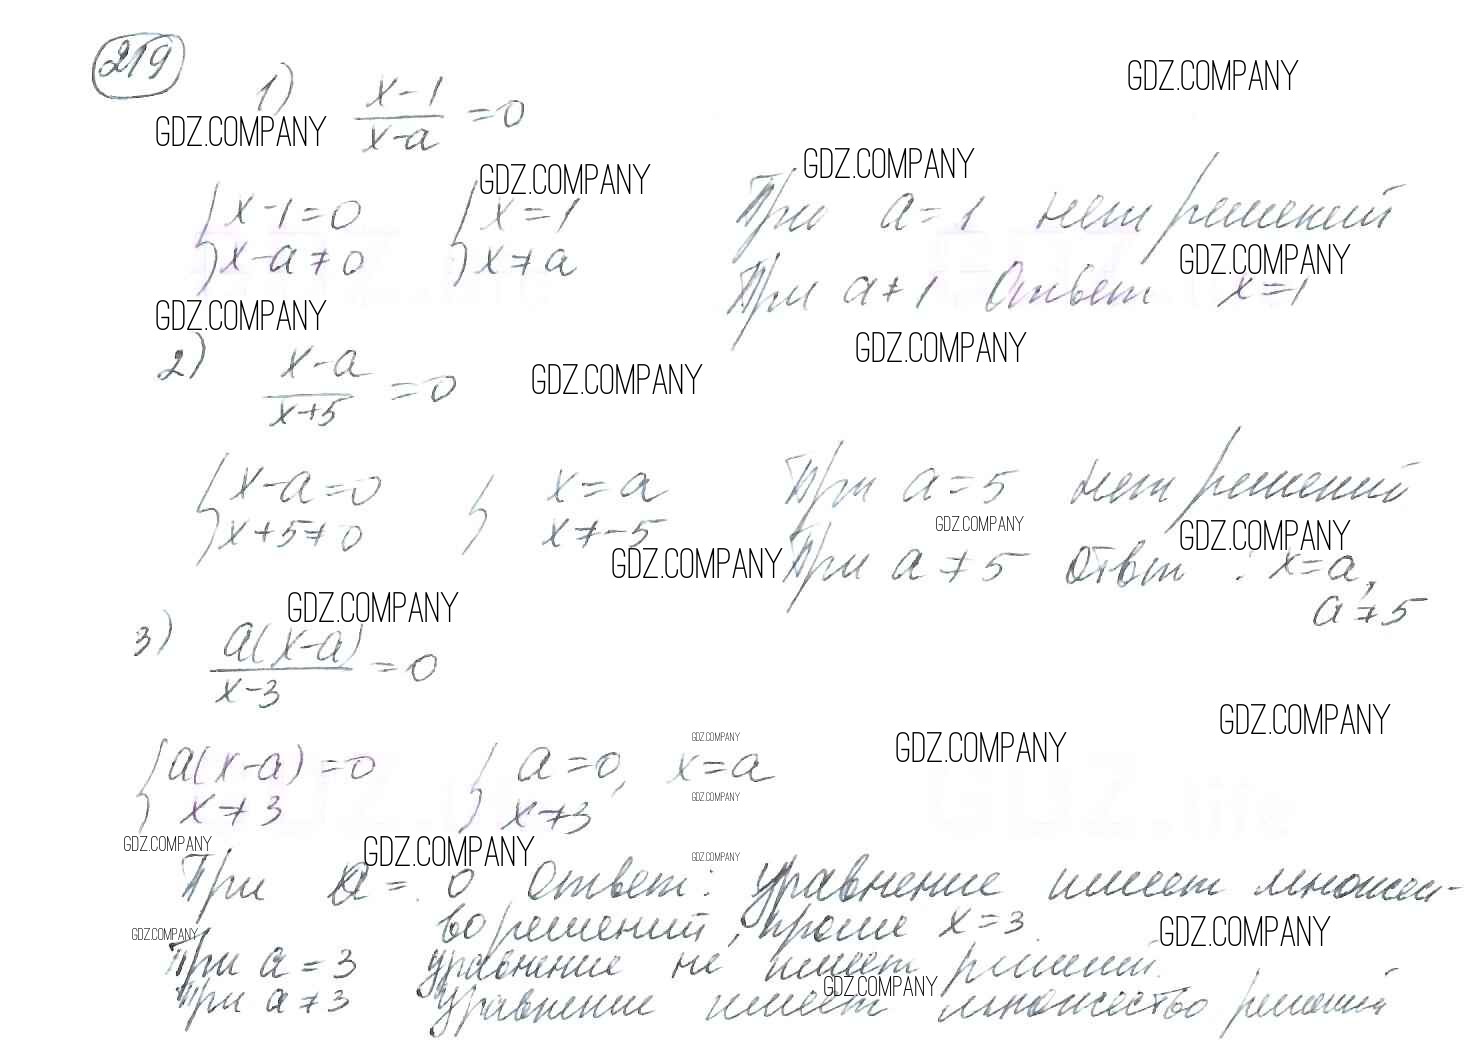 219
GDZ.COMPANY
1) x-1/x-a =0
GDZ.COMPANY
GDZ.COMPANY GDZ.COMPANY
{x-1=0 {x=1 При a=1 нет решений
x-a≠0 x≠a GDZ.COMPANY
При a≠1 Ответ x=1
GDZ.COMPANY
2) x-a/x+5 =0 GDZ.COMPANY
GDZ.COMPANY
{x-a=0 { x=a При a=5 нет решений
x+5≠0 x≠-5 GDZ.COMPANY GDZ.COMPANY
GDZ.COMPANY При a≠5 Ответ : x=a,
a≠5
GDZ.COMPANY
3) a(x-a)/x-3 =0
GDZ.COMPANY
GDZ.COMPANY GDZ.COMPANY
{a(x-a)=0 { a=0, x=a
x≠3 x≠3 GDZ.COMPANY
GDZ.COMPANY GDZ.COMPANY GDZ.COMPANY
При a=0 Ответ: уравнение имеет множест-
во решений, кроме x=3.
GDZ.COMPANY GDZ.COMPANY
При a=3 уравнение не имеет решений.
GDZ.COMPANY
При a≠3 уравнение имеет множество решений